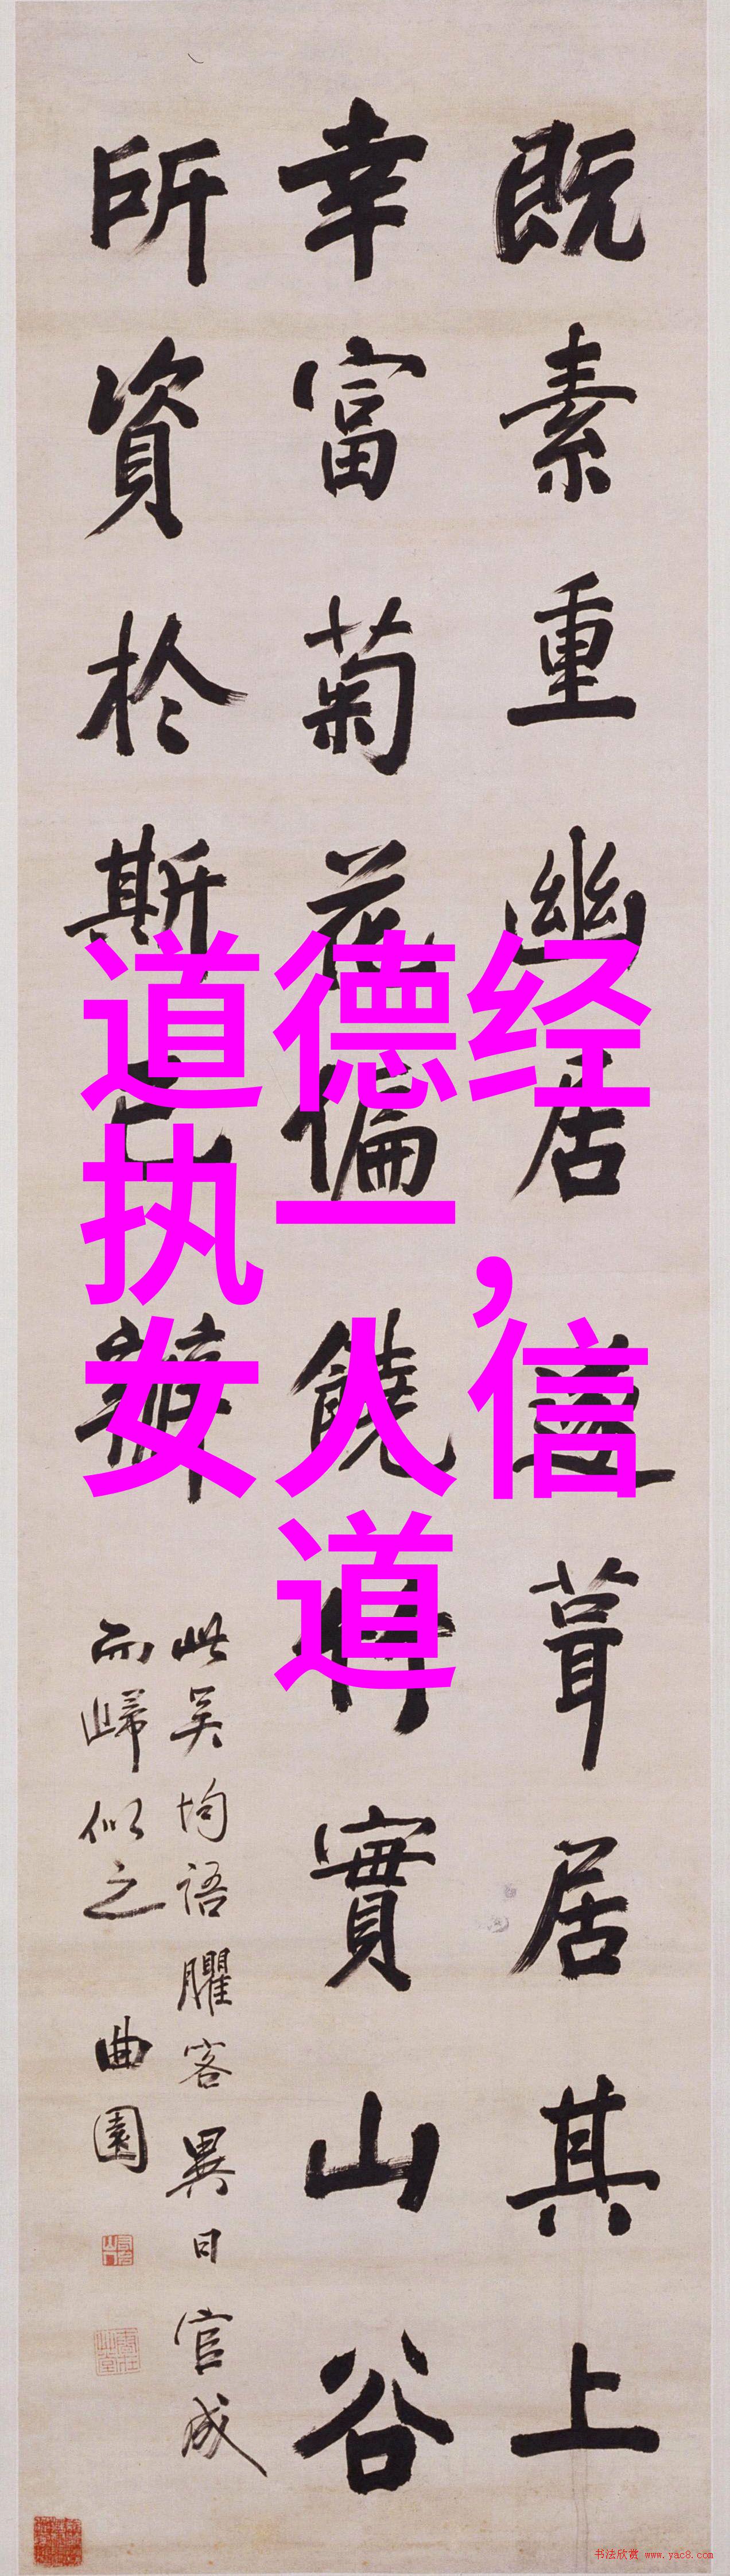 既素重幽居遂葺居其上
幸富菊花偏饒竹實山谷
所資於斯已辦
此吴均語臞客異日官成
而歸似之 曲園
道德经
执一,
女人信
道
书法欣赏 www.yac8.com